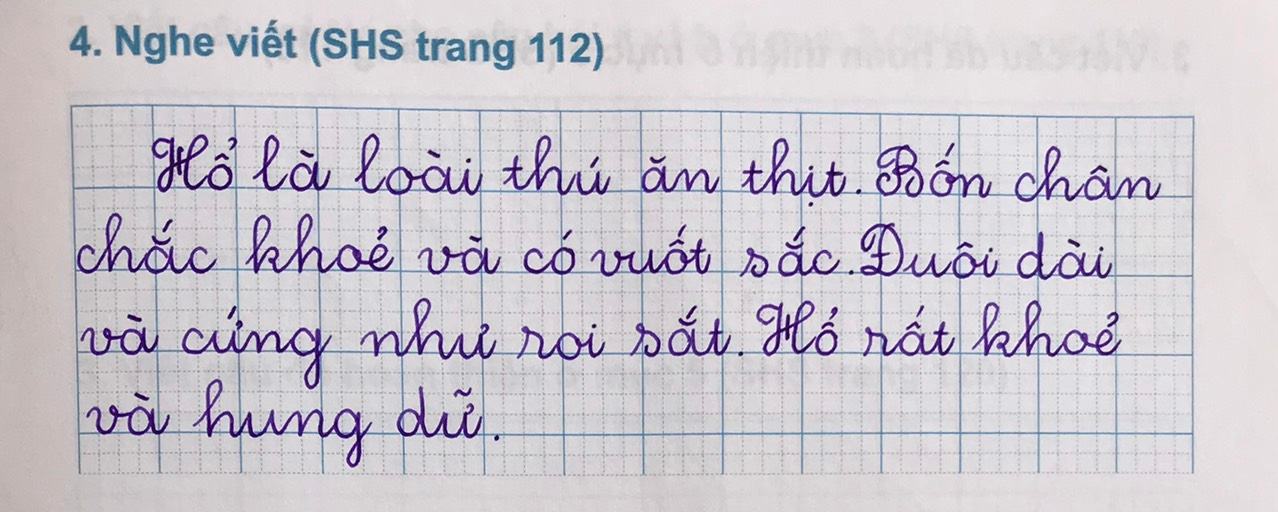 4. Nghe viết (SHS trang 112)
Hổ là loài thú ăn thịt. Bốn chân
chắc khoẻ và có vuốt sắc. Đuôi dài
và cứng như roi sắt. Hổ rất khoẻ
và hung dữ.